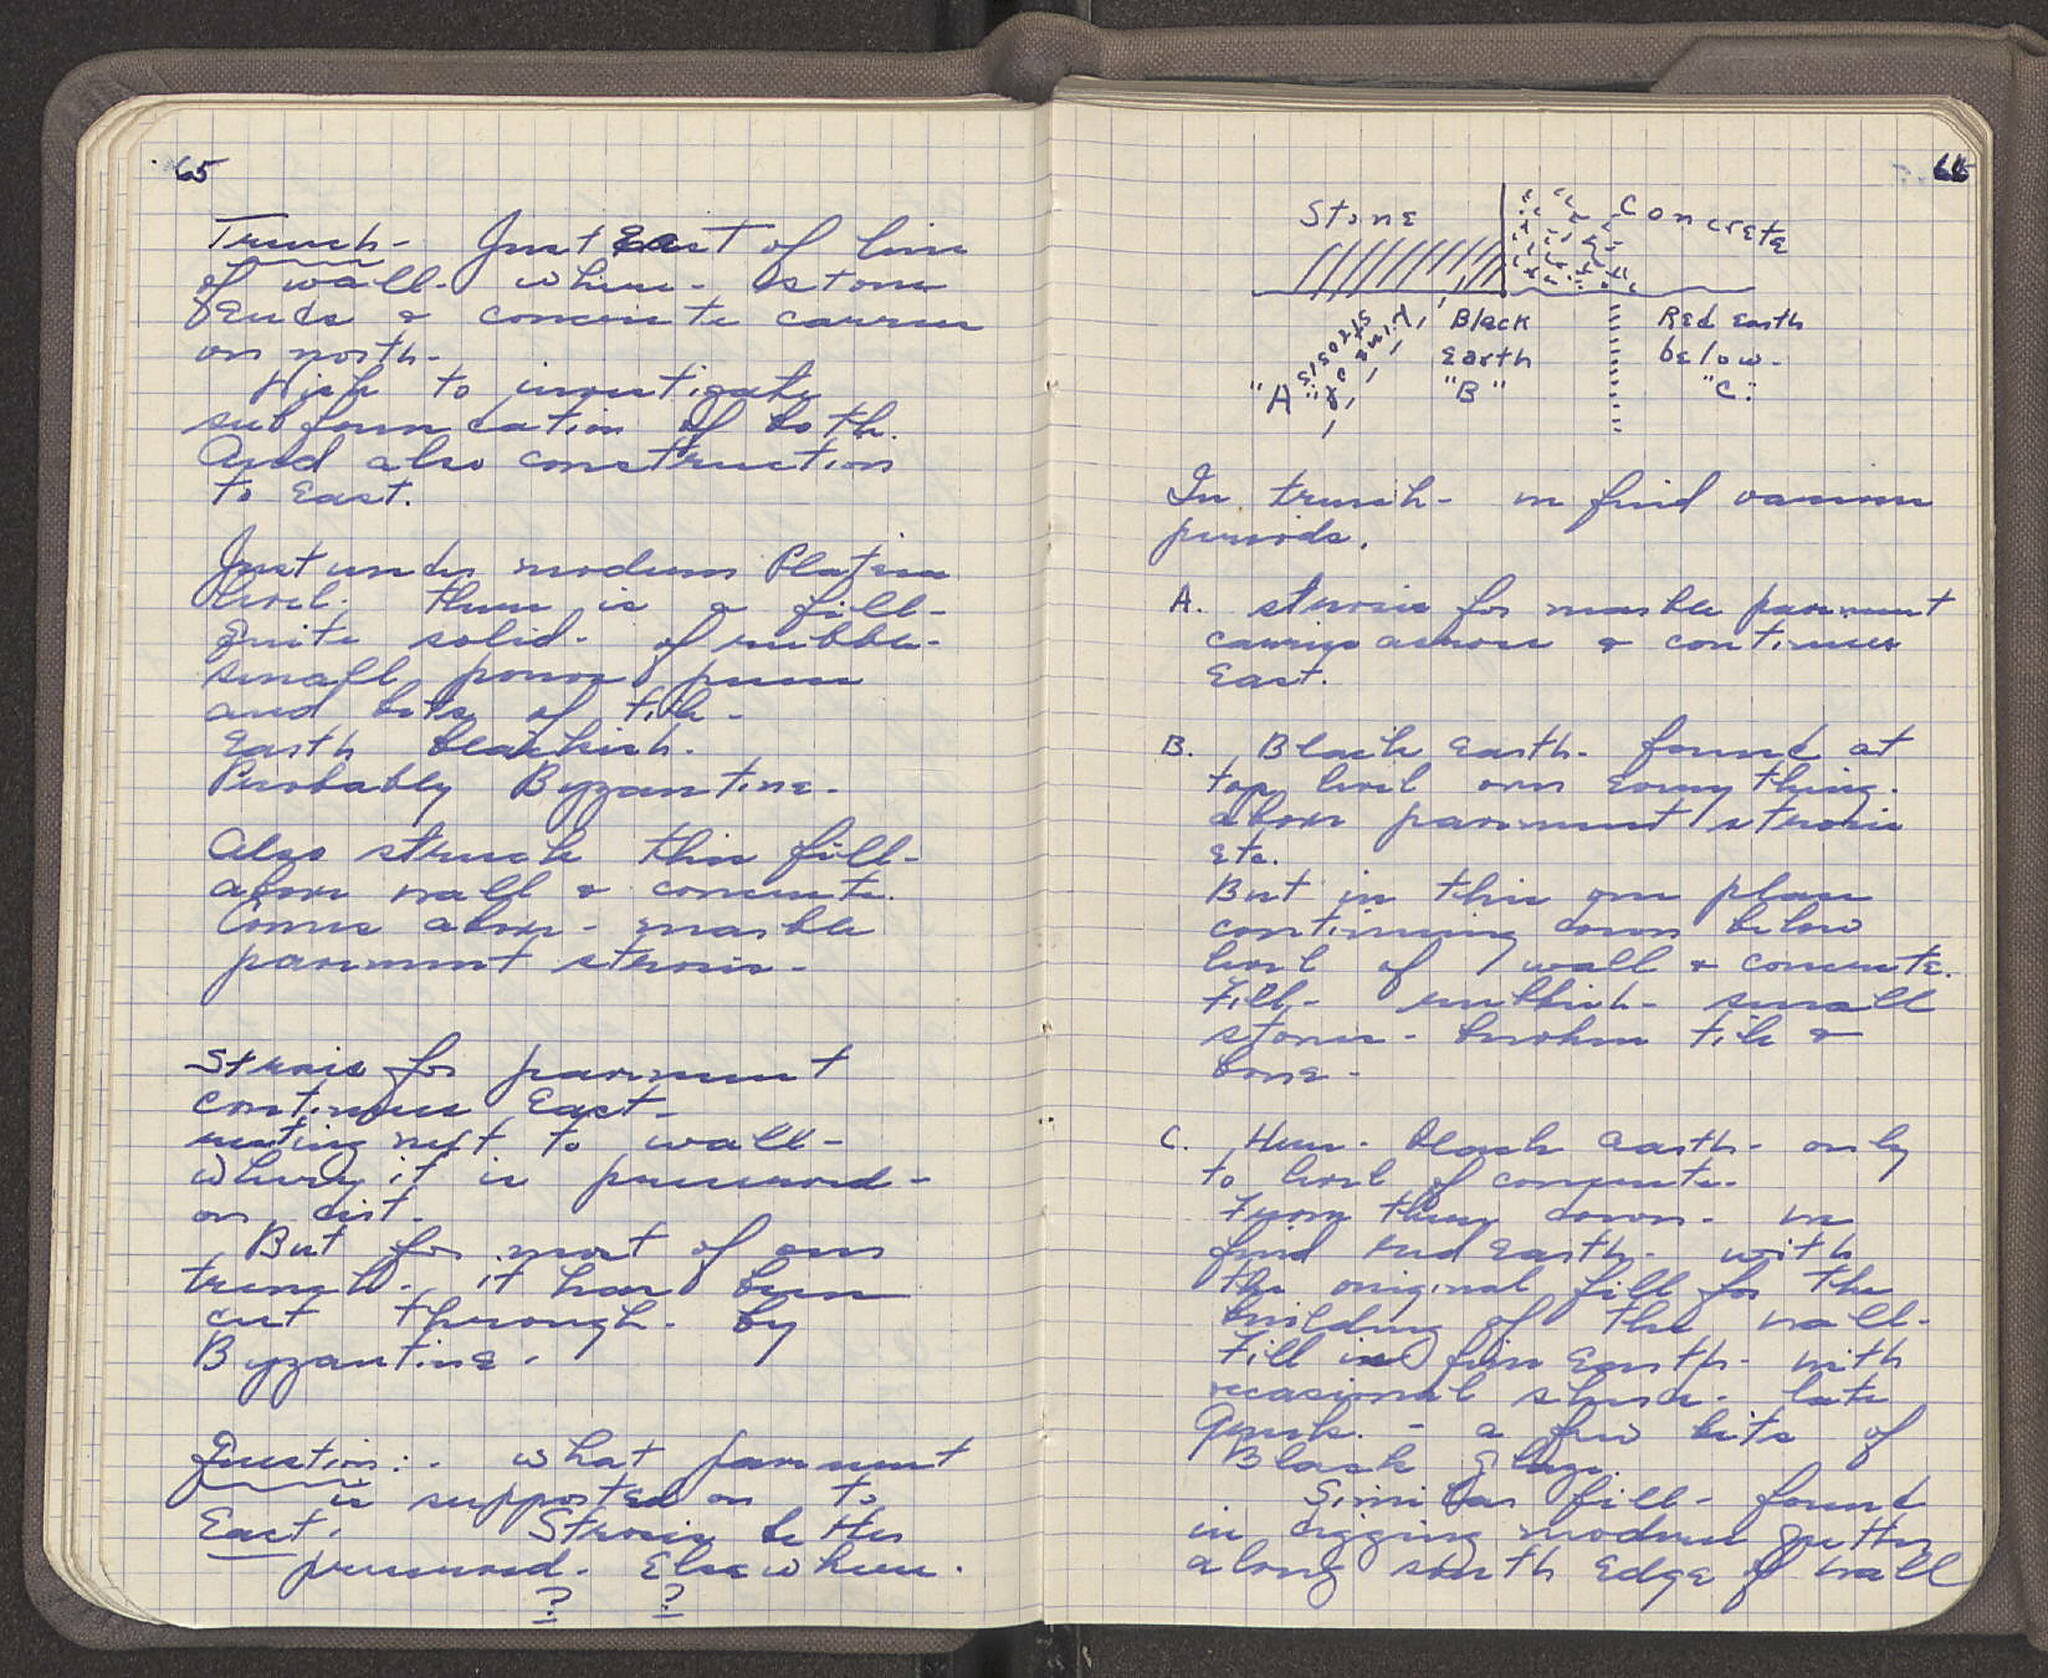 65
Trench - Just East of line
of wall - where - stone
ends & concrete carries
on north -
Wish to investigate
subfoundation of both.
And also construction
to East.
Just under modern Plateia
level. there is a fill -
quite solid - of rubble -
small poros pieces
and bits of tile -
Earth blackish.
Probably Byzantine.
Also struck this fill -
above wall & concrete.
Comes above - marble
pavement strosis -
Strosis for pavement
continues East -
resting next to wall -
where it is preserved -
on dirt.
But for most of our
trench - it has been
cut through - by
Byzantine.
Question: - what pavement
is supported on to
East. Strosis better
preserved. Elsewhere.
? ?
66
Stone Concrete
Line of strosis
Black Earth "B"
Red Earth below - "C".
"A"
In trench - we find various
periods.
A. strosis for marble pavement
carries across & continues
East.
B. Black Earth - found at
top level over everything.
above pavement strosis
etc.
But in this one place
continuing down below
level of wall & concrete.
Fill - rubbish - small
stones - broken tile &
bone -
C. Here - black earth - only
to level of concrete.
From there down - we
find red Earth - with
the original fill for the
building of the wall -
Fill is fine Earth - with
occasional sherd - late
Greek. - a few bits of
Black glaze.
Similar fill - found
in digging modern gutter
along south edge of wall